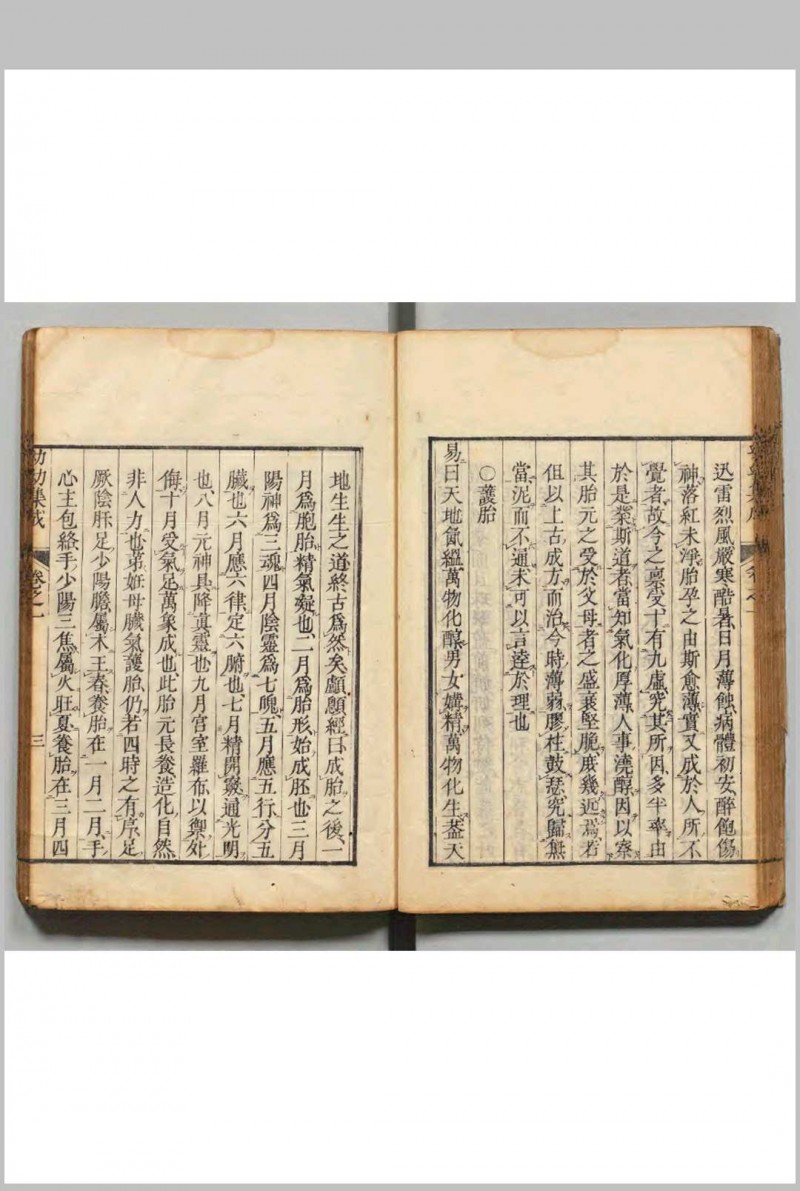 迅雷烈風嚴寒酷暑日月薄蝕病體初安醉飽傷
神落紅未淨胎孕之由斯愈薄實又成於人所不
覺者故今之稟受十有九虛究其所因多半率由
於是業斯道者當知氣化厚薄人事澆醇因以察
其胎元之受於父母者之盛衰堅脆庶幾近焉若
但以上古成方而治今時薄弱膠柱鼓瑟究歸無
當泥而不通未可以言達於理也
〇護胎
易曰天地氤縕萬物化醇男女媾精萬物化生蓋天
地生生之道終古為然矣顱顖經曰成胎之後一
月為胞胎精氣凝也二月為胎形始成胚也三月
陽神為三魂四月陰靈為七魄五月應五行分五
臟也六月應六律定六腑也七月精開竅通光明
也八月元神具降真靈也九月宮室羅布以禦外
侮十月受氣足萬象成也此胎元長養造化自然
非人力也第妊母臟氣護胎仍若四時之有序足
厥陰肝足少陽膽屬木王春養胎在一月二月手
心主包絡手少陽三焦屬火旺夏養胎在三月四
幼幼集成 卷之一 三